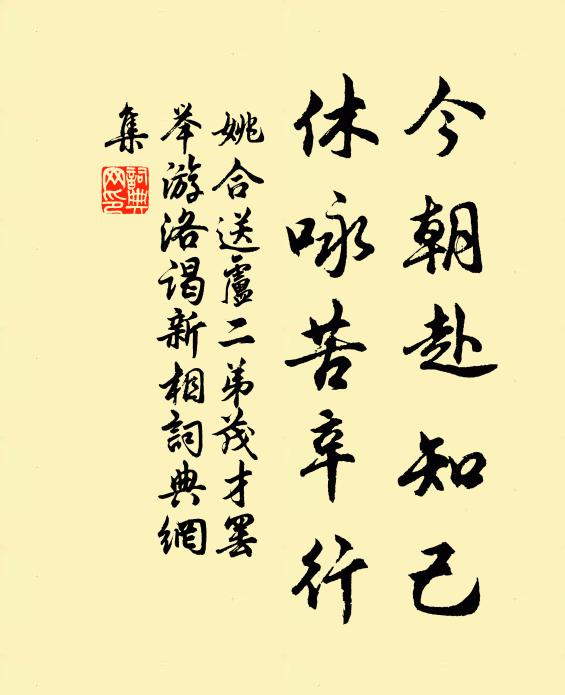 今朝赴知己
休咏苦辛行
姚合送盧二弟茂才罢
举游洛谒新相詞典網
集
詞典
网印